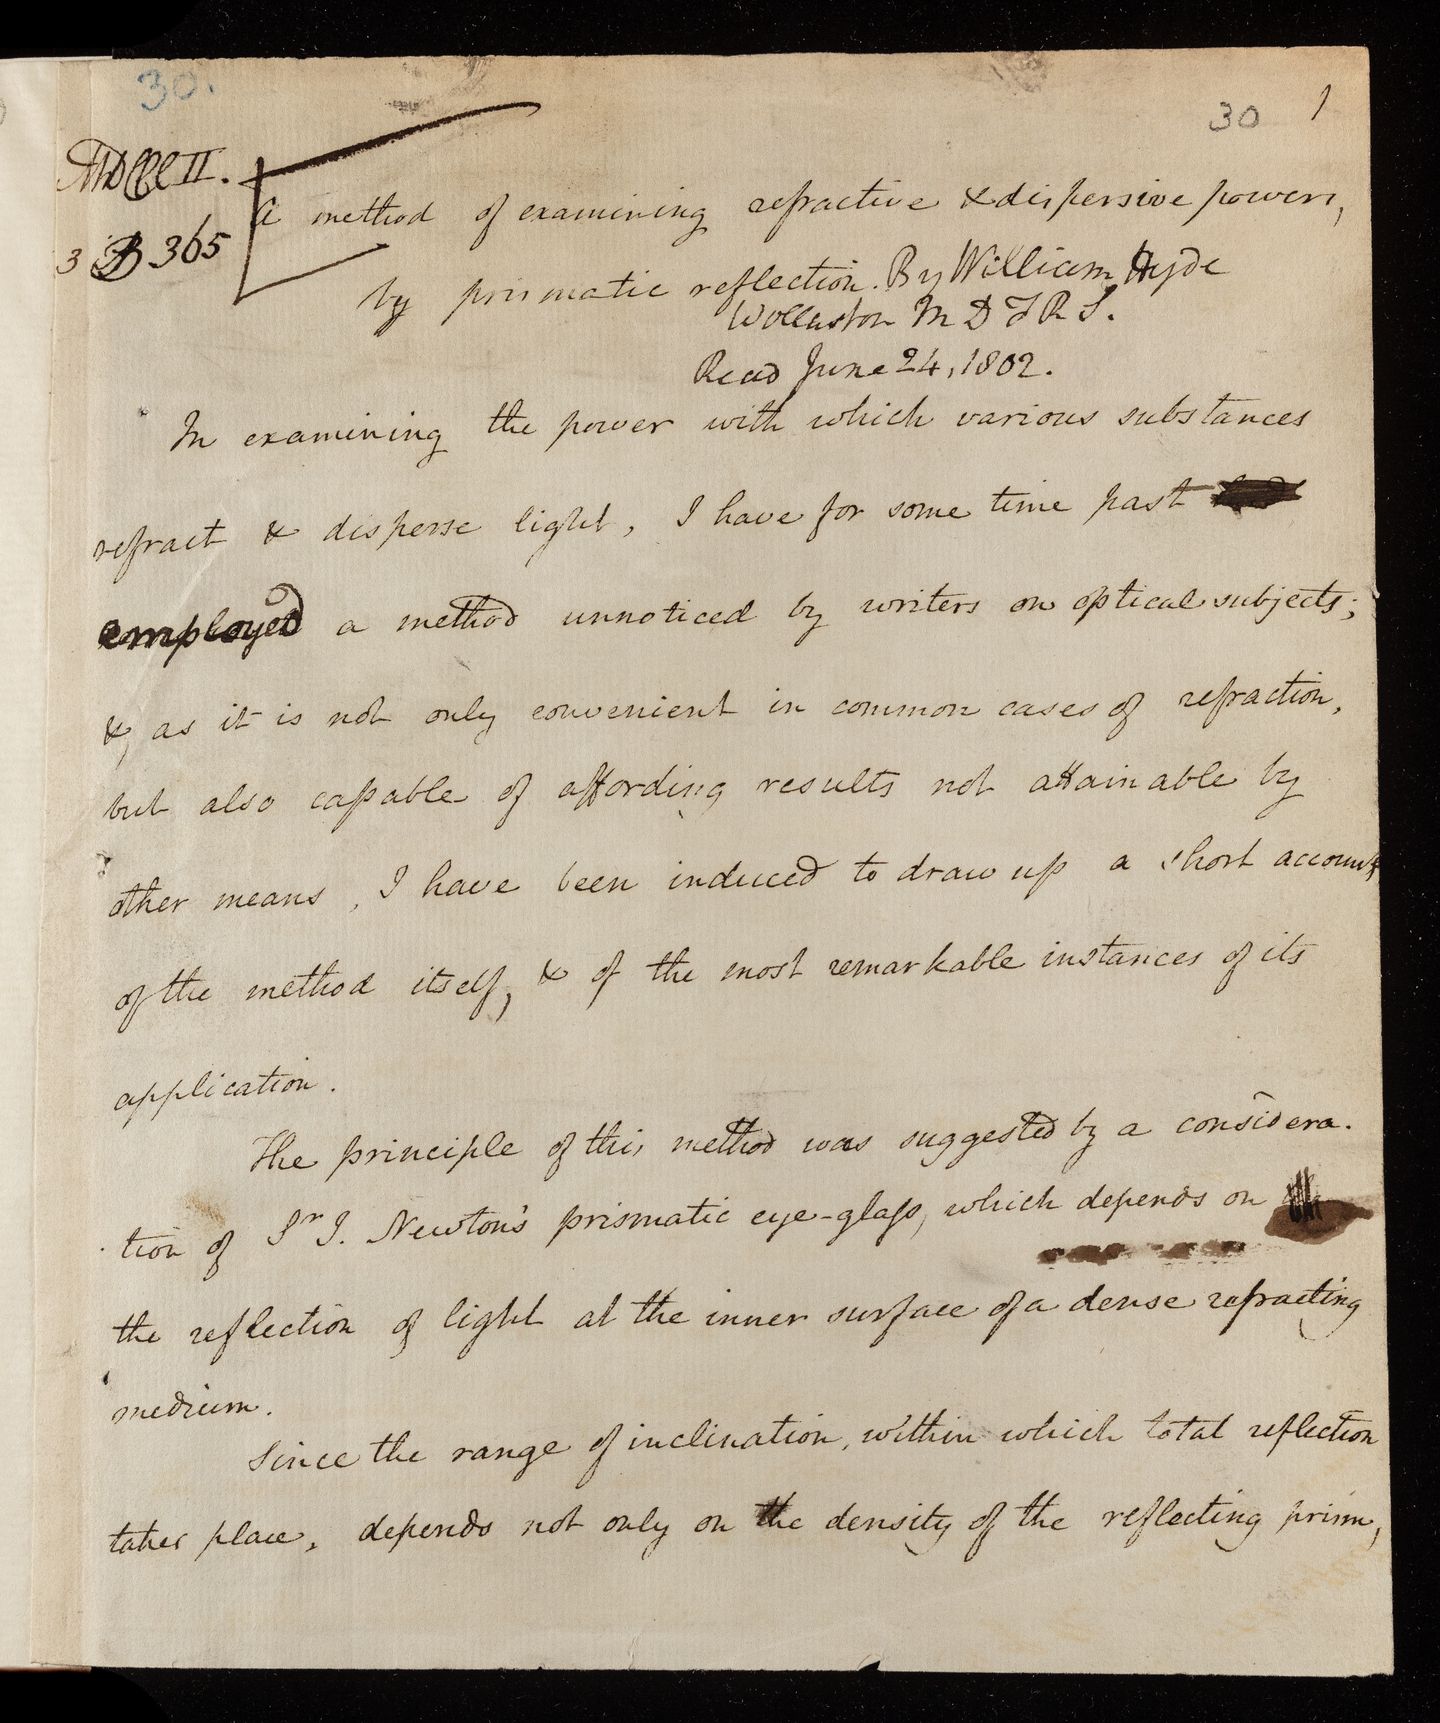 30.
30 1
MDCCCII.
3 B 365
A method of examining refractive & dispersive powers,
by prismatic reflection. By William Hyde
Wollaston M D F R S.
Read June 24, 1802.
In examining the power with which various substances
refract & disperse light, I have for some time past
employed a method unnoticed by writers on optical subjects;
&, as it is not only convenient in common cases of refraction,
but also capable of affording results not attainable by
other means, I have been induced to draw up a short account
of the method itself, & of the most remarkable instances of its
application.
The principle of this method was suggested by a considera-
tion of Sr I. Newton's prismatic eye-glass, which depends on
the reflection of light at the inner surface of a dense refracting
medium.
Since the range of inclination, within which total reflection
takes place, depends not only on the density of the reflecting prism,